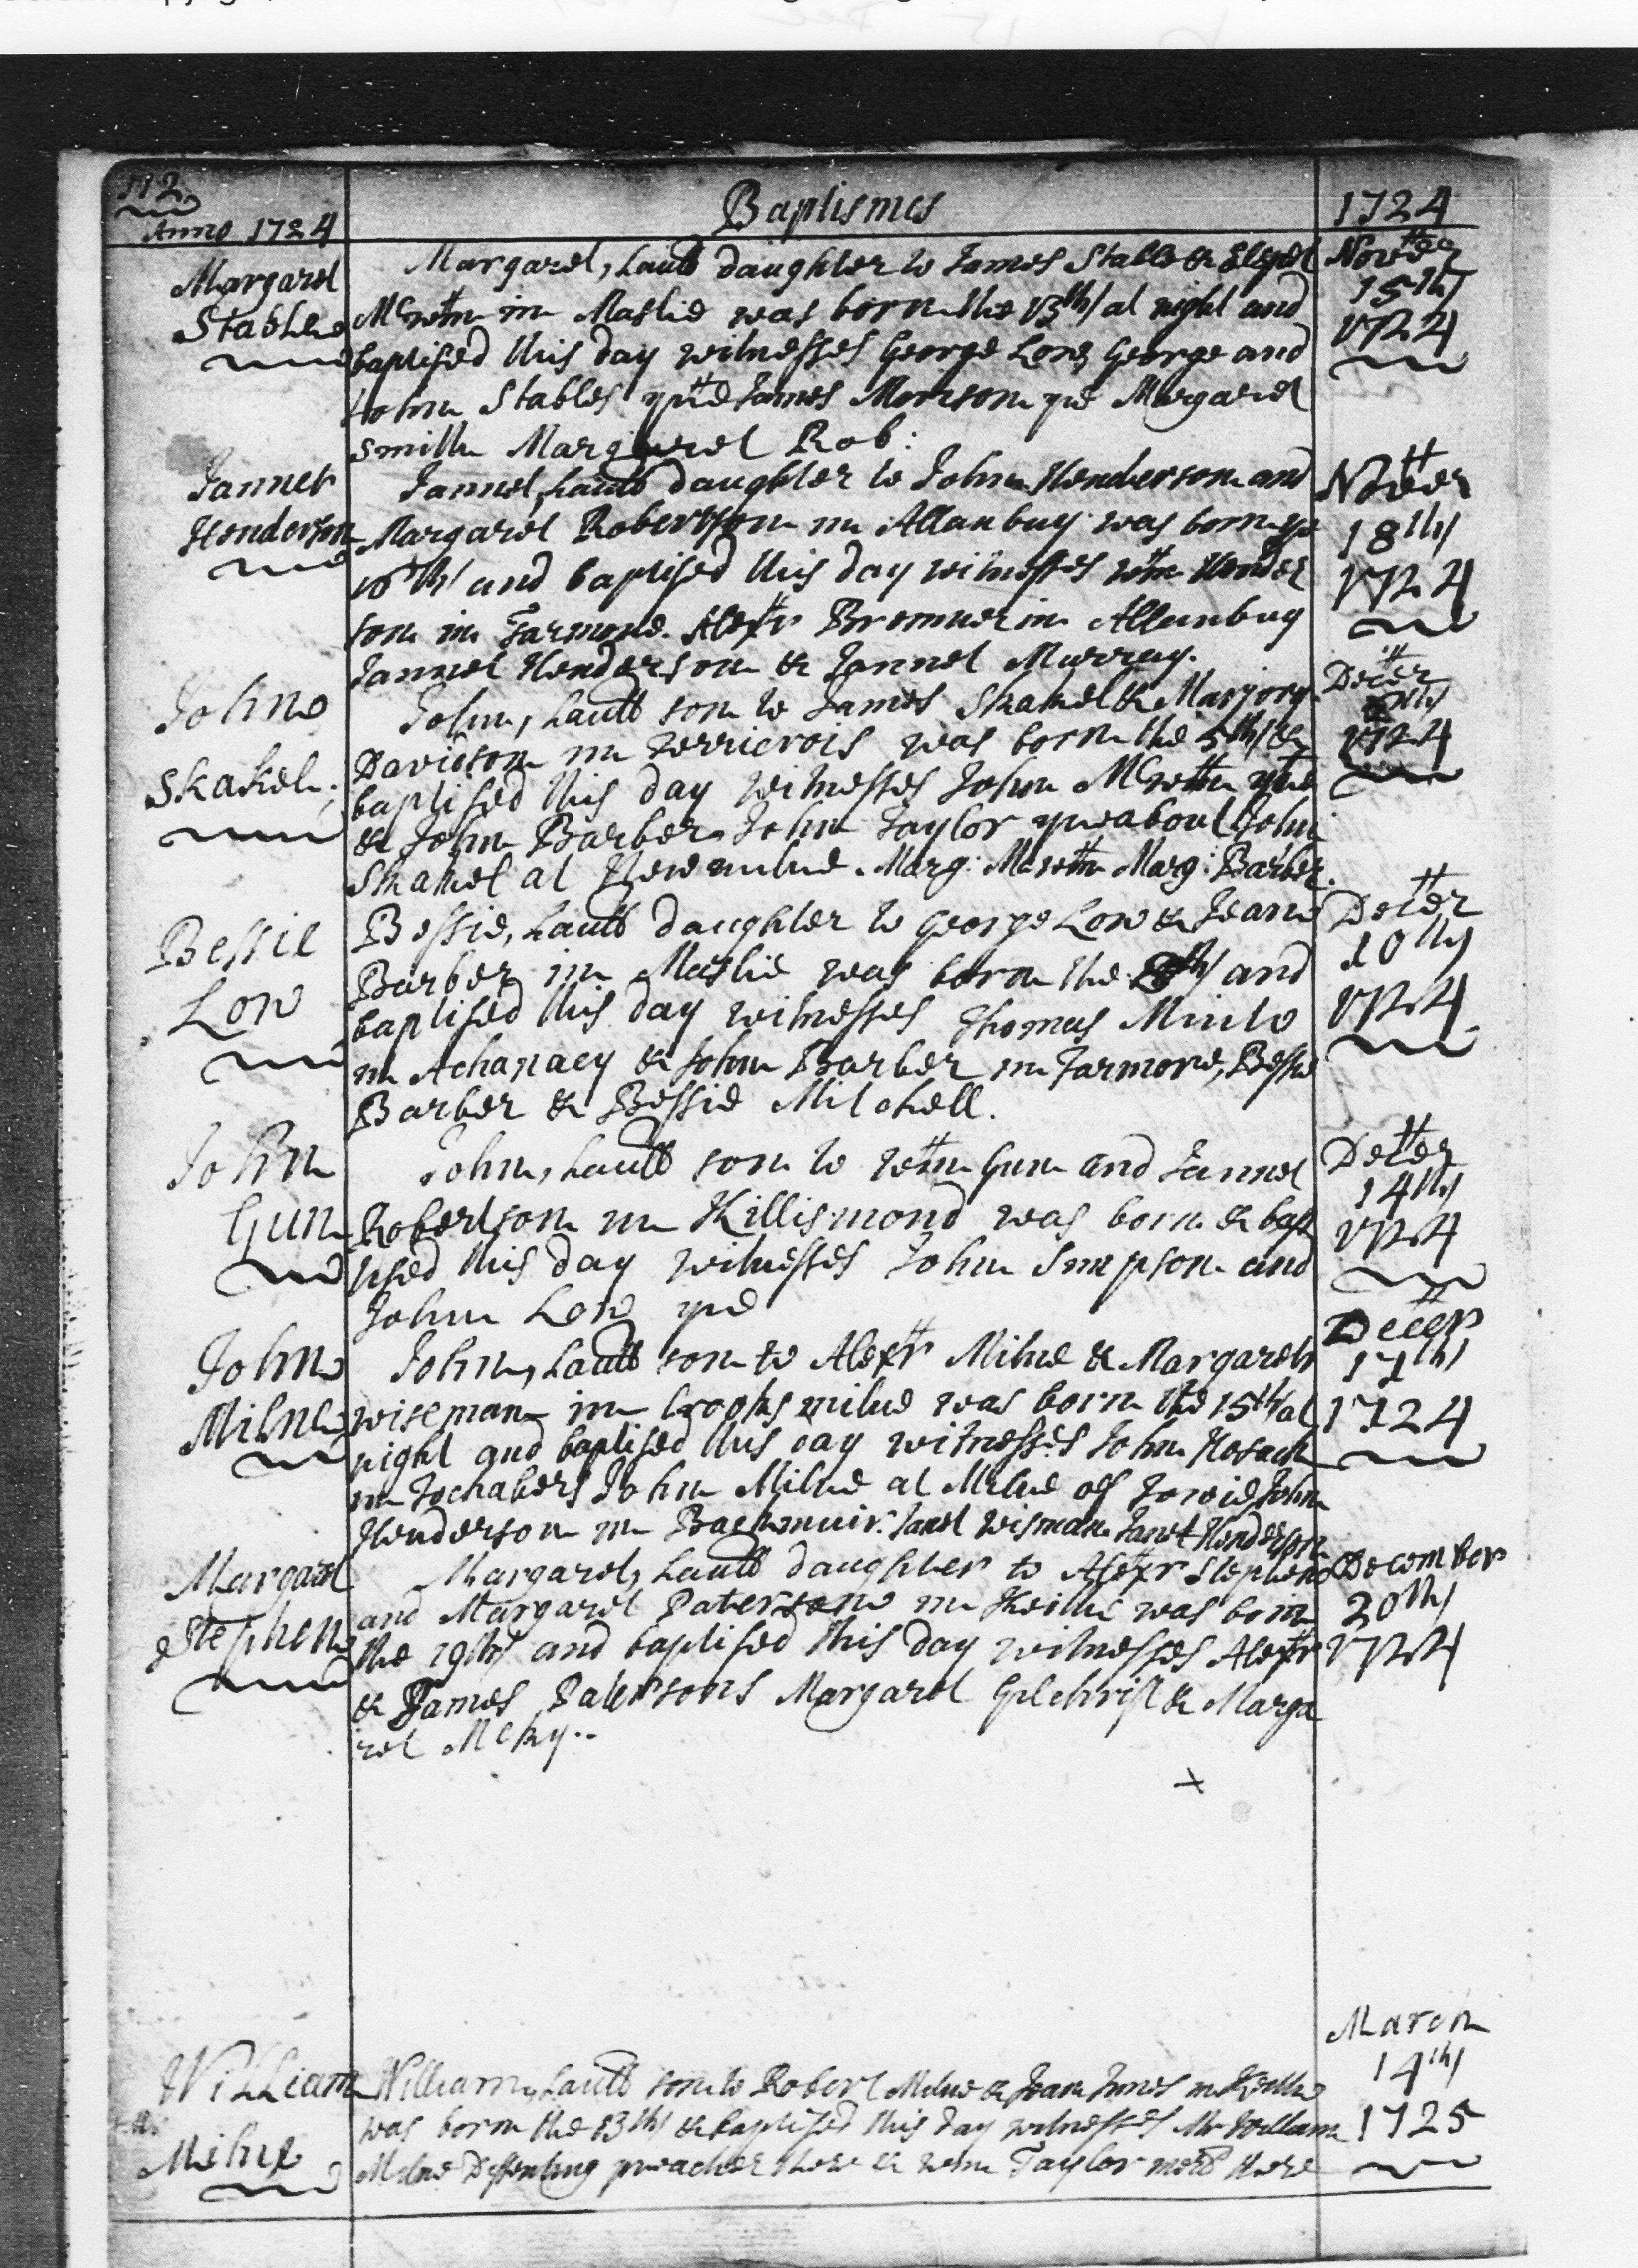 112
Anno 1724
Baptismes
1724
Margaret
Stables
Margaret, Lau^ll daughter to James Stable & Elspet
McWm in Maslie was born the 13th/ at night and
baptised this day witnesses George Low, George and
John Stables yre James Morison yre Margaret
Smith Margaret Rob:
Nover
15th/
1724
Jannet
Henderson
Jannet, Lau^ll daughter to John Henderson and
Margaret Robertson in Allanbuy was born ye
16th/ and baptised this day witnesses Wm Hender
son in Tarmore. Alexr Bremner in Allanbuy
Jannet Henderson & Jannet Murray.
Nover
18th/
1724
John
Skakel.
John, Lau^ll son to James Skakel & Marjory
Davidson in was born the 5th/ &
baptised this day witnesses John McWm yre
& John Barber John Taylor yreabout John
Skakel at Newmilne. Marg: McWm Marg: Barber.
Decer
1724
Bessie
Low
Bessie, Lau^ll daughter to George Low & Jean
Barber in Maslie was born the and
baptised this day witnesses Thomas Minto
in Achanacy & John Barber in Tarmore, Bessie
Barber & Bessie Mitchell.
Decer
10th/
1724
John
Gun
John, Lau^ll son to Wm Gun and Jannet
Robertson in Killismond was born & bap
tised this day witnesses John Simpson and
John Low yre
Decer
14th/
1724
John
Milne
John, Lau^ll son to Alexr Milne & Margaret
Wiseman in Crooksmilne was born the 15th/ at
night and baptised this day witnesses John Hosack
in Fochabers John Milne at Milne of Towie John
Henderson in Backmuir. Janet Wisman Janet Henderson
Decer
17th/
1724
Margaret
Stephen
Margaret, Lau^ll daughter to Alexr Stephen
and Margaret Paterson in Keith was born
the 19th/ and baptised this day witnesses Alexr
& James Patersons Margaret Gilchrist & Marga
ret McKy..
December
20th/
1724
William
Milne
William, Lau^ll son to Robert Milne & Jean Innes in Keith
was born the 13th/ & baptised this day witnesses Mr William
Milne Dissenting preacher there & Wm Taylor merd there
March
14th/
1725